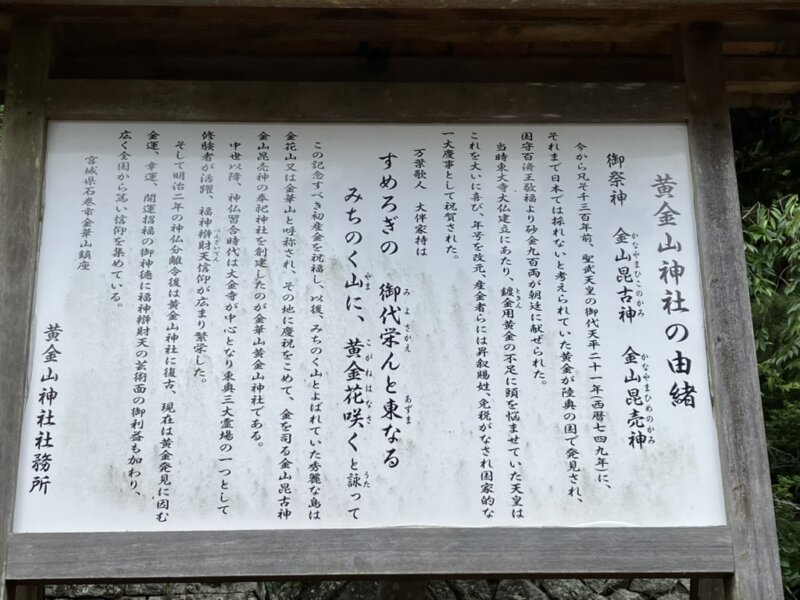 黄金山神社の由緒
御祭神　金山昆古神　金山昆売神
かなやまひこのかみ　かなやまひめのかみ
今から凡そ千三百年前、聖武天皇の御代天平二十一年(西暦七四九年)に、
それまで日本では採れないと考えられていた黄金が陸奥の国で発見され、
国守百済王敬福より砂金九百両が朝廷に献ぜられた。
当時東大寺大佛建立にあたり、鍍金用黄金の不足に頭を悩ませていた天皇は
ときん
これを大いに喜び、年号を改元、産金者らには昇叙賜姓、免税がなされ国家的な
一大慶事として祝賀された。
万葉歌人　大伴家持は
すめろぎの　御代栄んと東なる
みよさかえ　あずま
みちのく山に、黄金花咲くと詠って
やま　こがねはなさ　うた
この記念すべき初産金を祝福し、以後、みちのく山とよばれていた秀麗な島は
金花山又は金華山と呼称され、その地に慶祝をこめて、金を司る金山昆古神
金山昆売神の奉祀神社を創建したのが金華山黄金山神社である。
中世以降、神仏習合時代は大金寺が中心となり東奥三大霊場の一つとして
修験者が活躍、福神辯財天信仰が広まり繁栄した。
べんざいてん
そして明治二年の神仏分離令後は黄金山神社に復古、現在は黄金発見に因む
金運、幸運、開運招福の御神徳に福神辯財天の芸術面の御利益も加わり、
広く全国から篤い信仰を集めている。
宮城県石巻市金華山鎮座
黄金山神社社務所